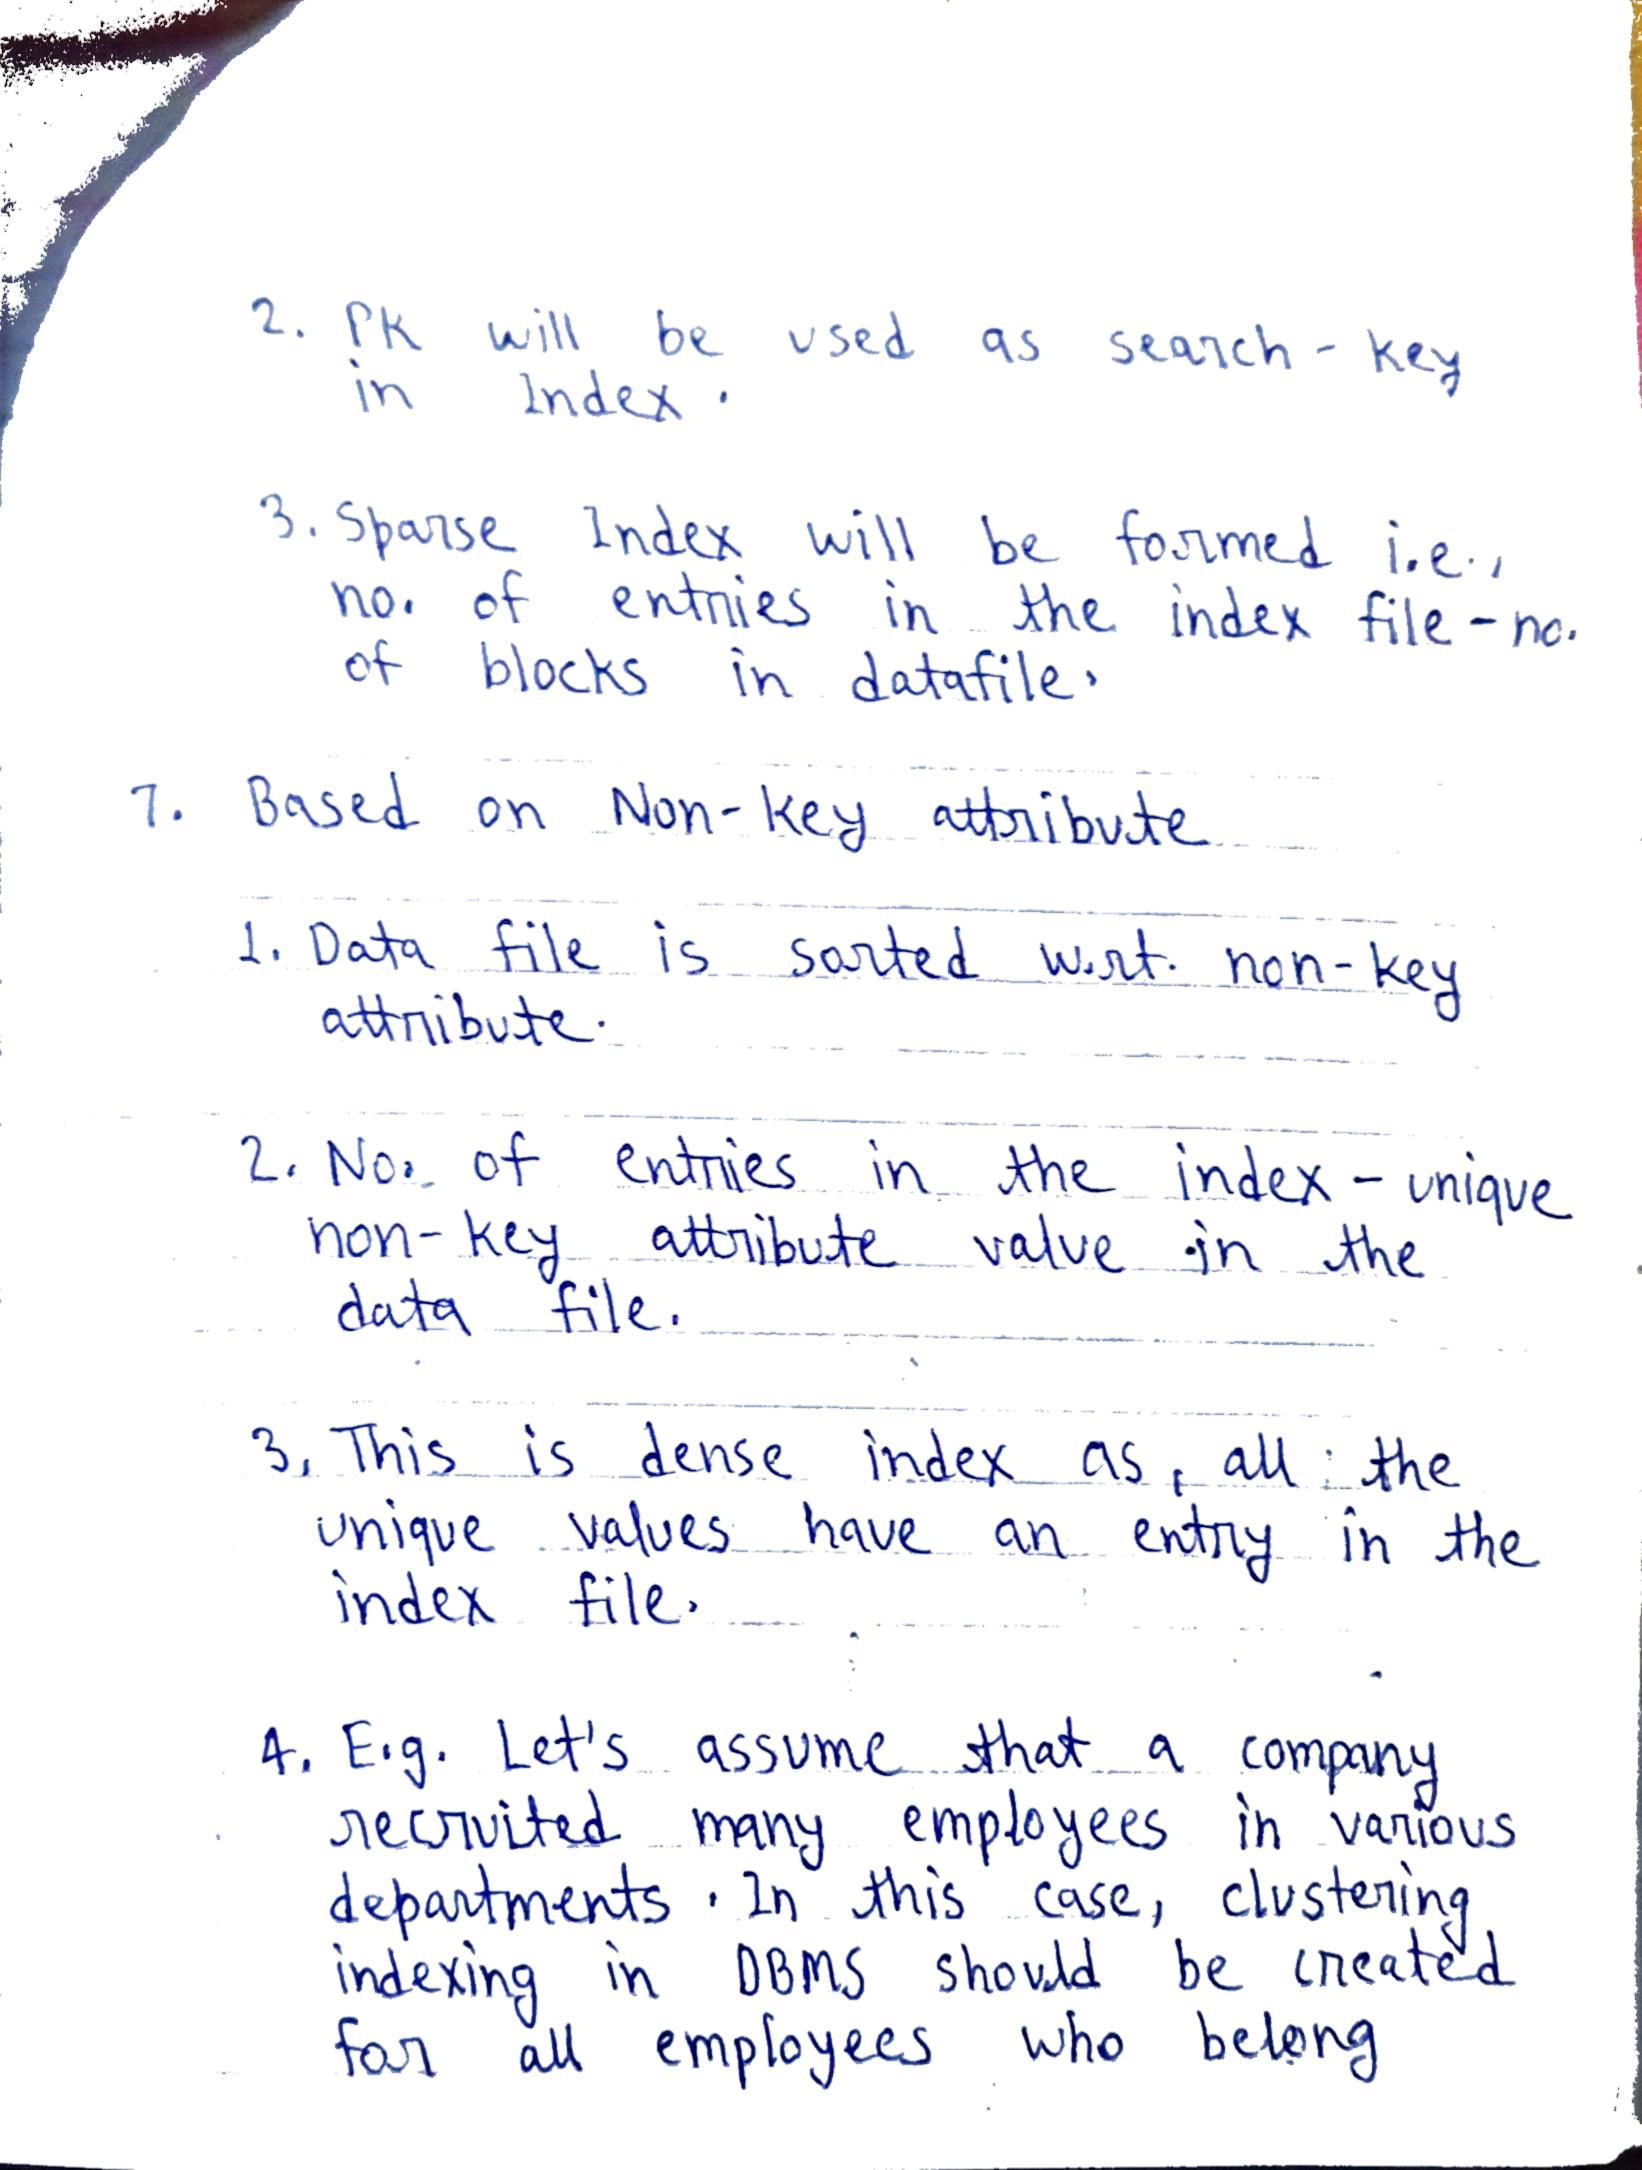 2. PK will be used as search-key
in Index.
3. Sparse Index will be formed i.e.,
no. of entries in the index file - no.
of blocks in datafile.
7. Based on Non-key attribute
1. Data file is sorted w.r.t. non-key
attribute.
2. No. of entries in the index - unique
non-key attribute value in the
data file.
3. This is dense index as, all the
unique values have an entry in the
index file.
4. E.g. Let's assume that a company
recruited many employees in various
departments. In this case, clustering
indexing in DBMS should be created
for all employees who belong